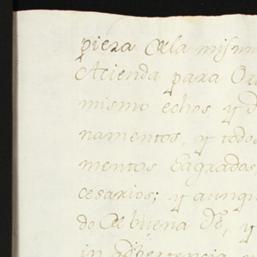 pieza de la mism
Acienda para O
mismo echos y d
namentos, y todos
mentos Sagrados
cesarios; y aunqu
do de buena fe, y
in advertencia